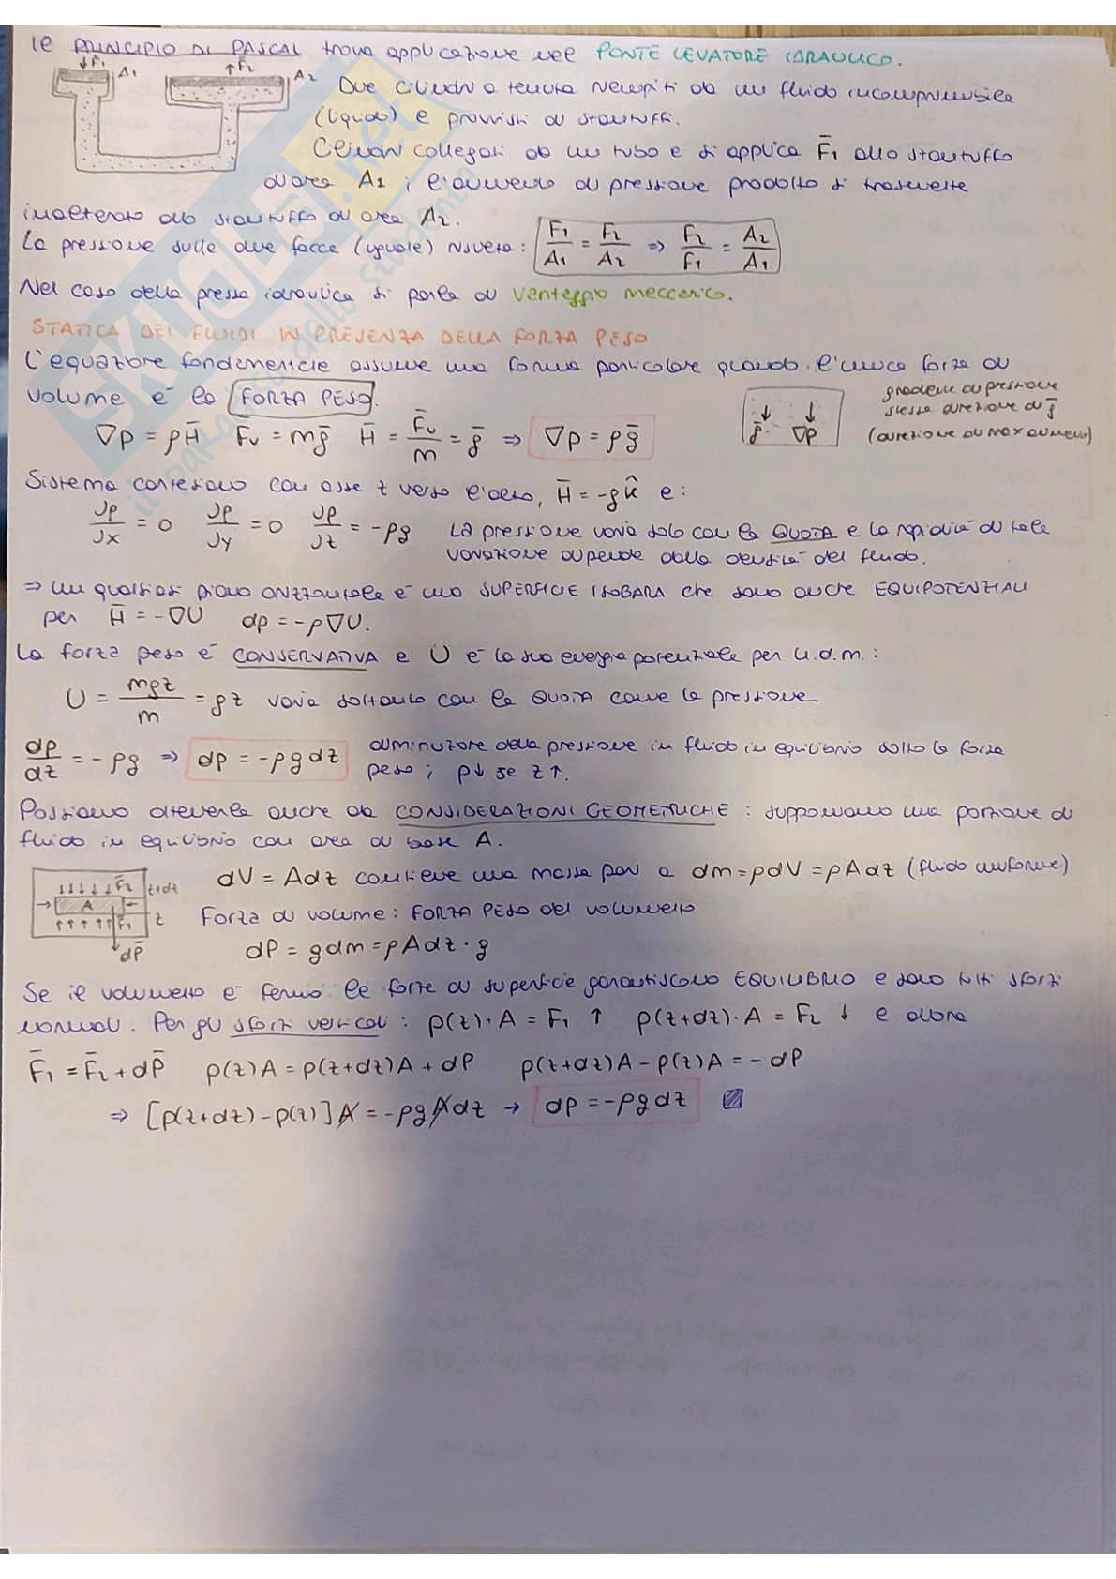 Il PRINCIPIO DI PASCAL trova applicazione nel PONTE LEVATORE IDRAULICO.
F̄₁ A₁ F̄₂ A₂
Due cilindri a tenuta riempiti da un fluido incomprimibile
(liquido) e provvisti di stantuffi.
Cilindri collegati da un tubo e si applica F̄₁ allo stantuffo
di area A₁; l'aumento di pressione prodotto si trasmette
inalterato allo stantuffo di area A₂.
La pressione sulle due facce (uguale) risulta: F₁/A₁ = F₂/A₂ ⇒ F₂/F₁ = A₂/A₁
Nel caso della pressa idraulica si parla di vantaggio meccanico.
STATICA DEI FLUIDI IN PRESENZA DELLA FORZA PESO
L'equazione fondamentale assume una forma particolare quando l'unica forza di
volume è la FORZA PESO.
∇p = ρH̄ F̄ᵥ = mḡ H̄ = F̄ᵥ/m = ḡ ⇒ ∇p = ρḡ
ḡ ∇p
gradiente di pressione
stessa direzione di ḡ
(direzione di max aumento)
Sistema cartesiano con asse z verso l'alto, H̄ = -gk̂ e:
∂p/∂x = 0 ∂p/∂y = 0 ∂p/∂z = -ρg La pressione varia solo con la QUOTA e la rapidità di tale
variazione dipende dalla densità del fluido.
⇒ Un qualsiasi piano orizzontale è una SUPERFICIE ISOBARA che sono anche EQUIPOTENZIALI
per H̄ = -∇U dp = -ρ∇U.
La forza peso è CONSERVATIVA e U è la sua energia potenziale per u.d.m.:
U = mgz/m = gz varia soltanto con la QUOTA come la pressione
dp/dz = -ρg ⇒ dp = -ρgdz diminuzione della pressione in fluido in equilibrio sotto la forza
peso; p↓ se z↑.
Possiamo ottenerla anche da CONSIDERAZIONI GEOMETRICHE: supponiamo una porzione di
fluido in equilibrio con area di base A.
F̄₂ z+dz A z F̄₁ dP̄
dV = Adz contiene una massa pari a dm = ρdV = ρAdz (fluido uniforme)
Forza di volume: FORZA PESO del volumetto
dP = gdm = ρAdz·g
Se il volumetto è fermo le forze di superficie garantiscono EQUILIBRIO e sono tutti sforzi
normali. Per gli sforzi verticali: p(z)·A = F₁ ↑ p(z+dz)·A = F₂ ↓ e allora
F̄₁ = F̄₂ + dP̄ p(z)A = p(z+dz)A + dP p(z+dz)A - p(z)A = -dP
⇒ [p(z+dz) - p(z)]A = -ρgAdz → dp = -ρgdz